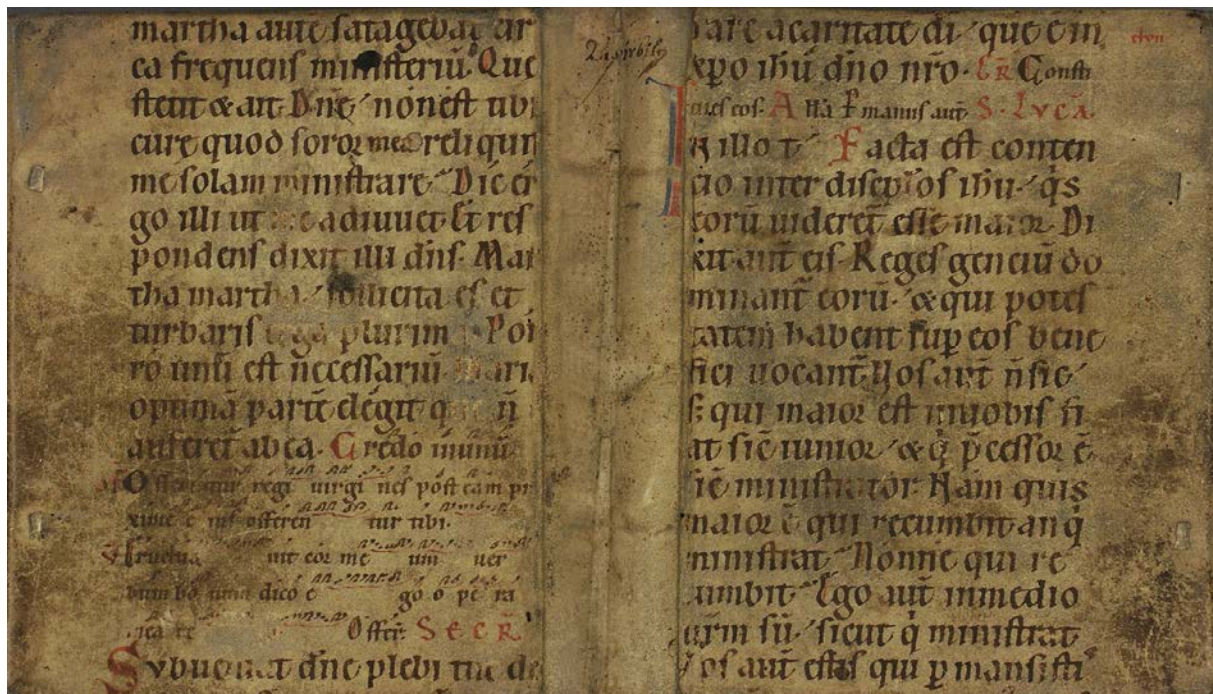 martha autē satagebat cir
ca frequens ministeriū. Que
stetit & ait. Dn̄e, non est tibi
cure quod soror mea reliquit
me solam ministrare. Dic er
go illi ut me adiuvet. Et res
pondens dixit illi dn̄s. Mar
tha martha, sollicita es et
turbaris erga plurima. Por
ro unū est necessariū. Maria
optimā partē elegit que n̄
auferet̄ ab ea. Credo in unū
Offerentur regi virgines post eam pr
oxime eius offerentur tibi.
Eructavit cor meum ver
bum bonum dico ego opera
Offer. SECR̄
Subveniat dn̄e plebi tue
rare a caritate di. que ē in
xp̄o ihū dn̄o nr̄o. GR̄ Consti
tues eos. Alla manus aut̄ S. LVCA
In illo t̄. Facta est conten
cio inter discip̄los ihū. q̄s
eorū videret̄ esse maior. Di
xit aut̄ eis. Reges genciū do
minant̄ eorū. & qui potes
tatem habent sup̄ eos bene
fici vocant̄. Vos aut̄ n̄ sic
s; qui maior est in vobis fi
at sic̄ iunior. & q̄ p̄cessor ē
sic̄ ministrator. Nam quis
maior ē qui recumbit an q̄
ministrat. Nonne qui re
cumbit. Ego aut̄ in medio
vr̄m sū. sicut q̄ ministrat
Vos aut̄ estis qui p̄mansisti